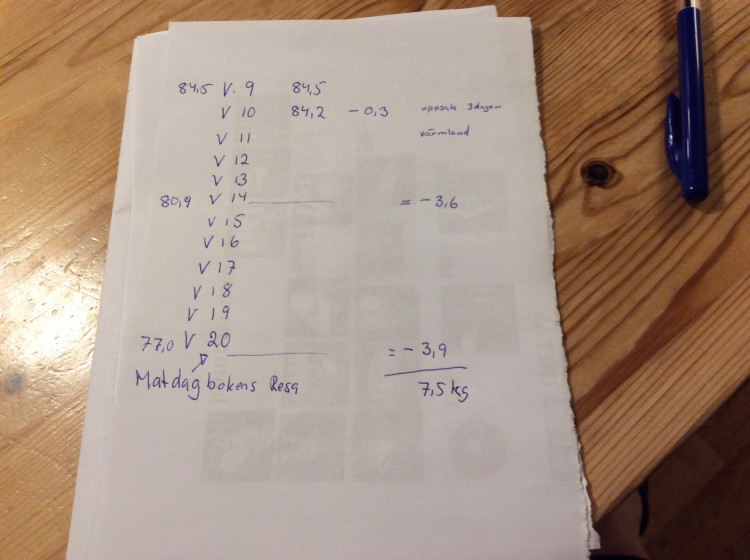 84,5 V. 9 84,5
V 10 84,2 - 0,3 uppsala 3 dagar
V 11 värmland
V 12
V 13
80,9 V 14 = - 3,6
V 15
V 16
V 17
V 18
V 19
77,0 V 20 = - 3,9
Matdagbokens Resa 7,5 kg